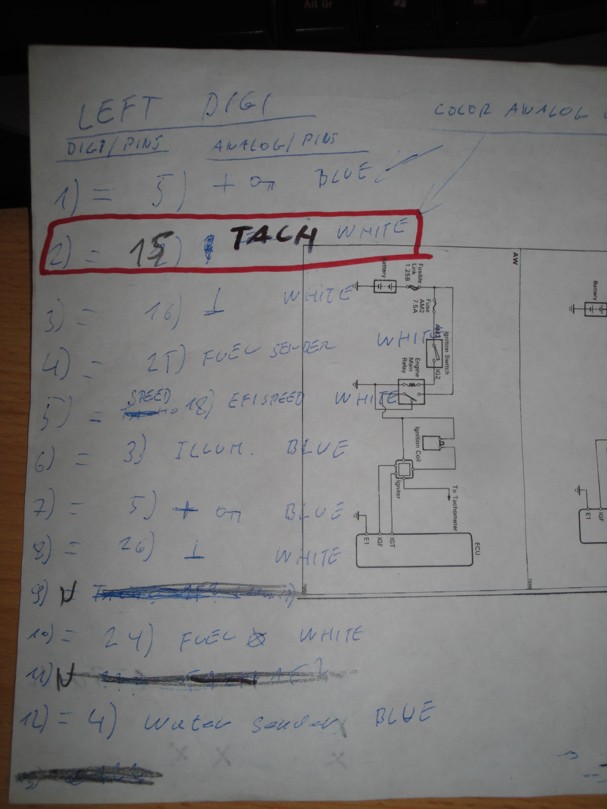 Alt Gr
LEFT DIGI
COLOR ANALOG
DIGI/PINS ANALOG/PINS
1) = 5) + on BLUE
2) = 15) TACH WHITE
3) = 16) ⊥ WHITE
4) = 25) FUEL SENDER WHITE
5) = SPEED 18) EFI SPEED WHITE
6) = 3) ILLUM. BLUE
7) = 5) + on BLUE
8) = 26) ⊥ WHITE
9) N
10) = 24) FUEL WHITE
11) N
12) = 4) Water Sender BLUE
AW
Battery
Fusible Link 1.25B
Fuse AM2 7.5A
Ignition Switch
IG2
Engine Main Relay
Ignition Coil
Igniter
To Tachometer
ECU
E1
IGF
IGT
Battery
E1
IGF